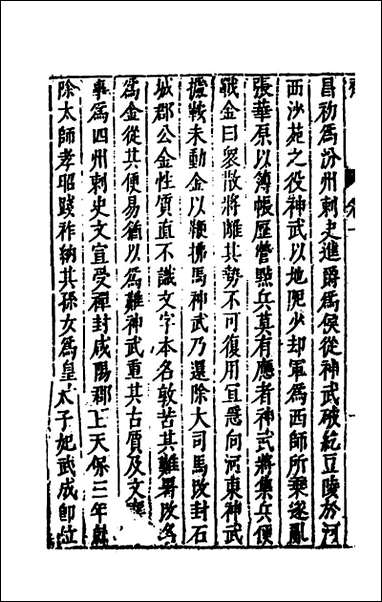 昌初爲汾州刺史進爵爲侯從神武破紇豆陵於河
西沙苑之役神武以地阨少却軍爲西師所乘遂亂
張華原以簿帳歷營點兵莫有應者神武將集兵便
戰金曰衆散將離其勢不可復用宜急向河東神武
據鞍未動金以鞭拂馬神武乃還除大司馬改封石
城郡公金性質直不識文字本名敦苦其難署改名
爲金從其便易猶以爲難神武重其古質及文襄
事爲四州刺史文宣受禪封咸陽郡王天保三年就
除太師孝昭踐祚納其孫女爲皇太子妃武成卽位